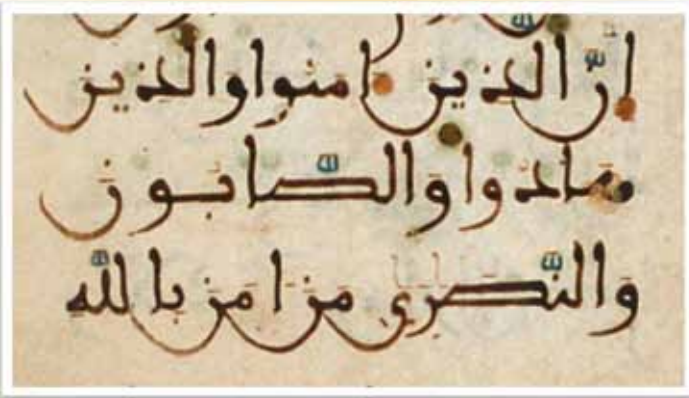 إنّ الذين ءامنوا والذين
هادوا والصّابون
والنّصرى من ءامن بالله